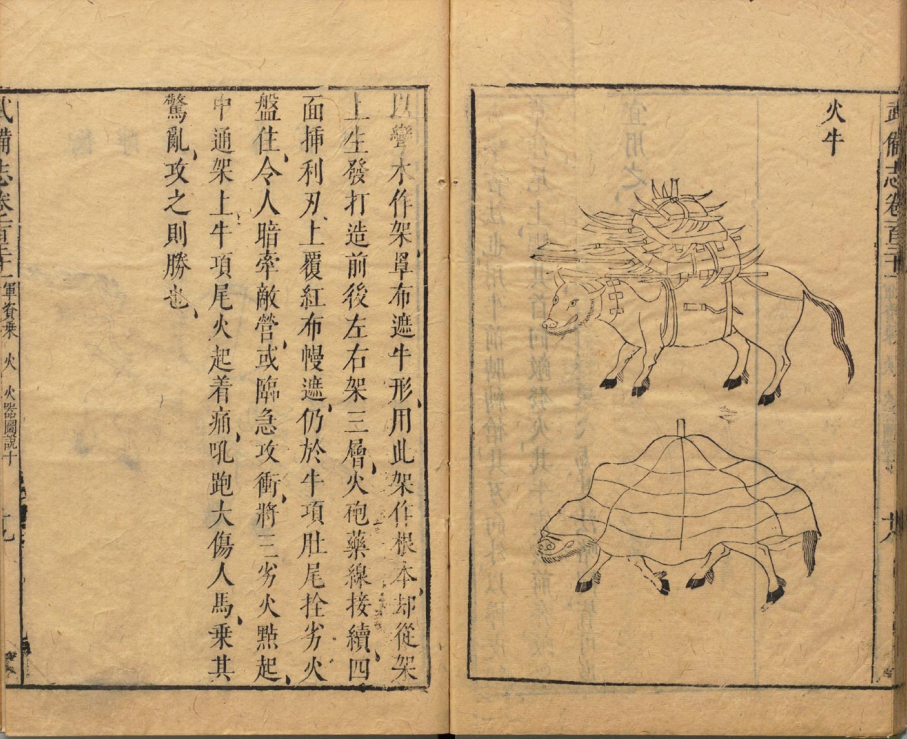 武備志卷一百三十一
火牛
以彎木作架罩布遮牛形用此架作根本却從架
上生發打造前後左右架三層火砲藥線接續四
面插利刃上覆紅布幔遮仍於牛項肚尾拴劣火
盤住令人暗牽敵營或臨急攻衝將三劣火點起
中通架上牛項尾火起着痛吼跑大傷人馬乘其
驚亂攻之則勝也
武備志卷一百三十一
軍資乘 火 火器圖說十
十九